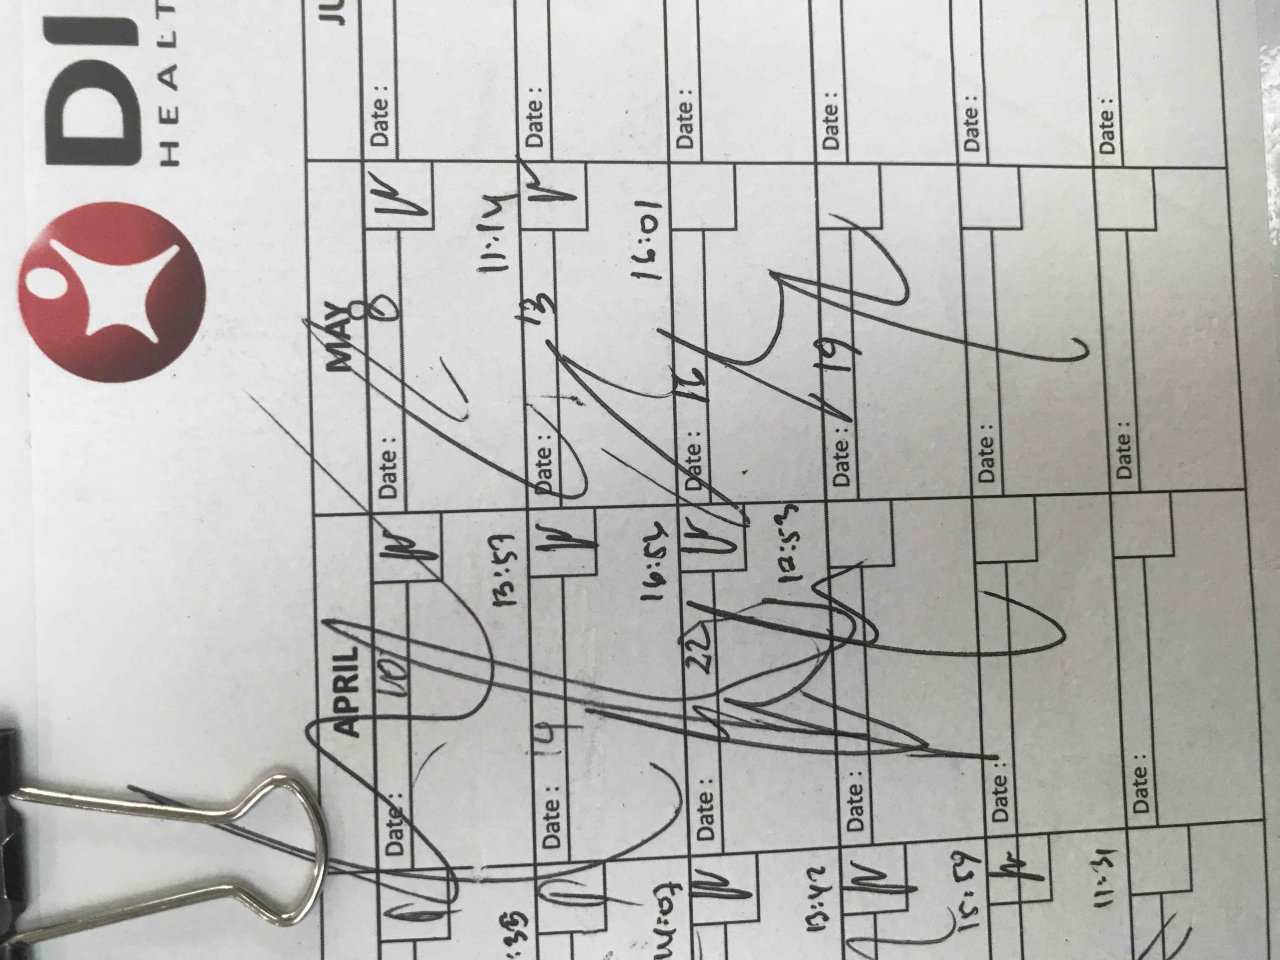 DI
HEALT
APRIL MAY JU
Date: 10 Date: 8 Date:
:35 13:57 11:14
Date: 14 Date: 13 Date:
14:07 16:53 16:01
Date: 22 Date: 16 Date:
13:42 12:53
Date: Date: 19 Date:
15:59
Date: Date: Date:
11:31
Date: Date: Date: